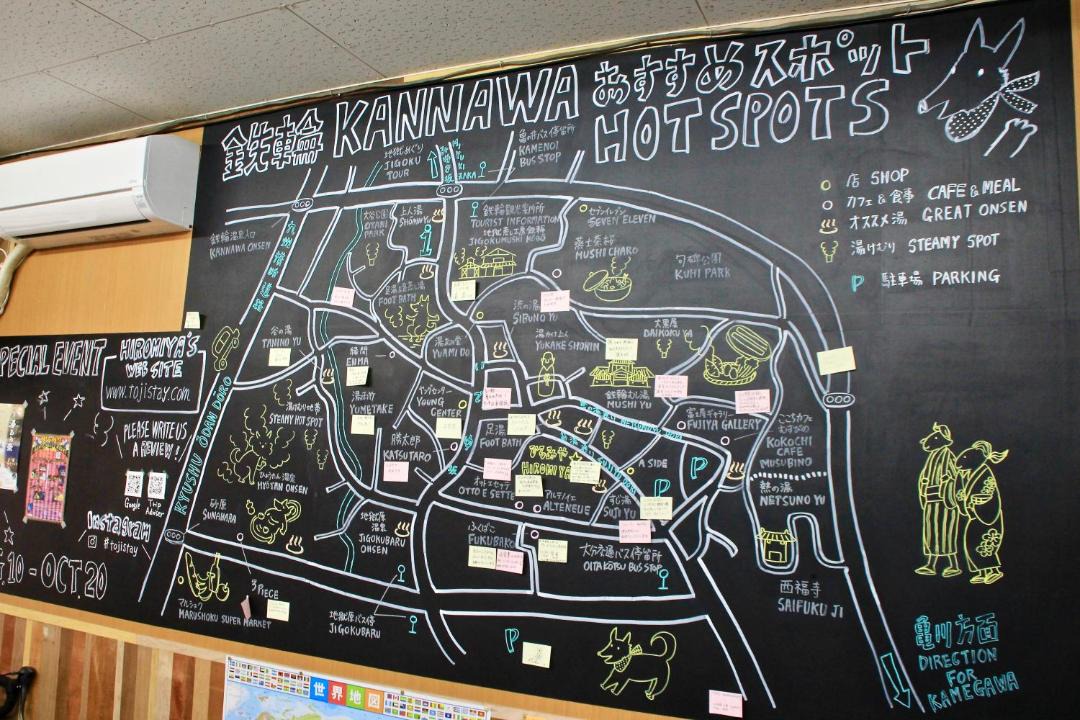 鉄輪 KANNAWA おすすめスポット
HOT SPOTS
店 SHOP
カフェ&食事 CAFE & MEAL
オススメ湯 GREAT ONSEN
湯けむり STEAMY SPOT
P 駐車場 PARKING
地獄めぐり
JIGOKU
TOUR
亀の井バス停留所
KAMENOI
BUS STOP
鉄輪温泉入口
KANNAWA ONSEN
大谷公園
OYANI
PARK
上人湯
SHONIN YU
鉄輪観光案内所
TOURIST INFORMATION
地獄蒸し工房鉄輪
JIGOKUMUSHI KOBO
セブンイレブン
SEVEN ELEVEN
蒸士茶郎
MUSHI CHARO
句碑公園
KUHI PARK
FOOT BATH
渋の湯
SIBUNO YU
谷の湯
TANINO YU
閻間
ENMA
YUAMI DO
湯かけ上人
YUKAKE SHONIN
大黒屋
DAIKOKU YA
鉄輪むし湯
MUSHI YU
湯けむり地帯
STEAMY HOT SPOT
湯治竹
YUMETAKE
ヤングセンター
YOUNG
CENTER
勝太郎
KATSUTARO
足湯
FOOT BATH
ひろみや
HIROMIYA
冨士屋ギャラリー
FUJIYA GALLERY
ここちカフェ
むすびの
KOKOCHI
CAFE
MUSUBINO
A SIDE
P
ひょうたん温泉
HYOTAN ONSEN
オットエセッテ
OTTO E SETTE
アルテノイエ
ALTENEUE
すじ湯
SUJI YU
P
熱の湯
NETSUNO YU
砂原
SUNAHARA
地獄原
温泉
JIGOKUBARU
ONSEN
ふくばこ
FUKUBAKO
大分交通バス停留所
OITA KOTSU BUS STOP
西福寺
SAIFUKU JI
3 PIECE
マルショク
MARUSHOKU SUPER MARKET
地獄原バス停
JIGOKUBARU
P
KYUSHU ODAN DORO
亀川方面
DIRECTION
FOR
KAMEGAWA
SPECIAL EVENT
HIROMIYA'S
WEB SITE
www.tojistay.com
PLEASE WRITE US
A REVIEW!
Google
Trip
Adviser
Instagram
#tojistay
10 - OCT.20
世界地図